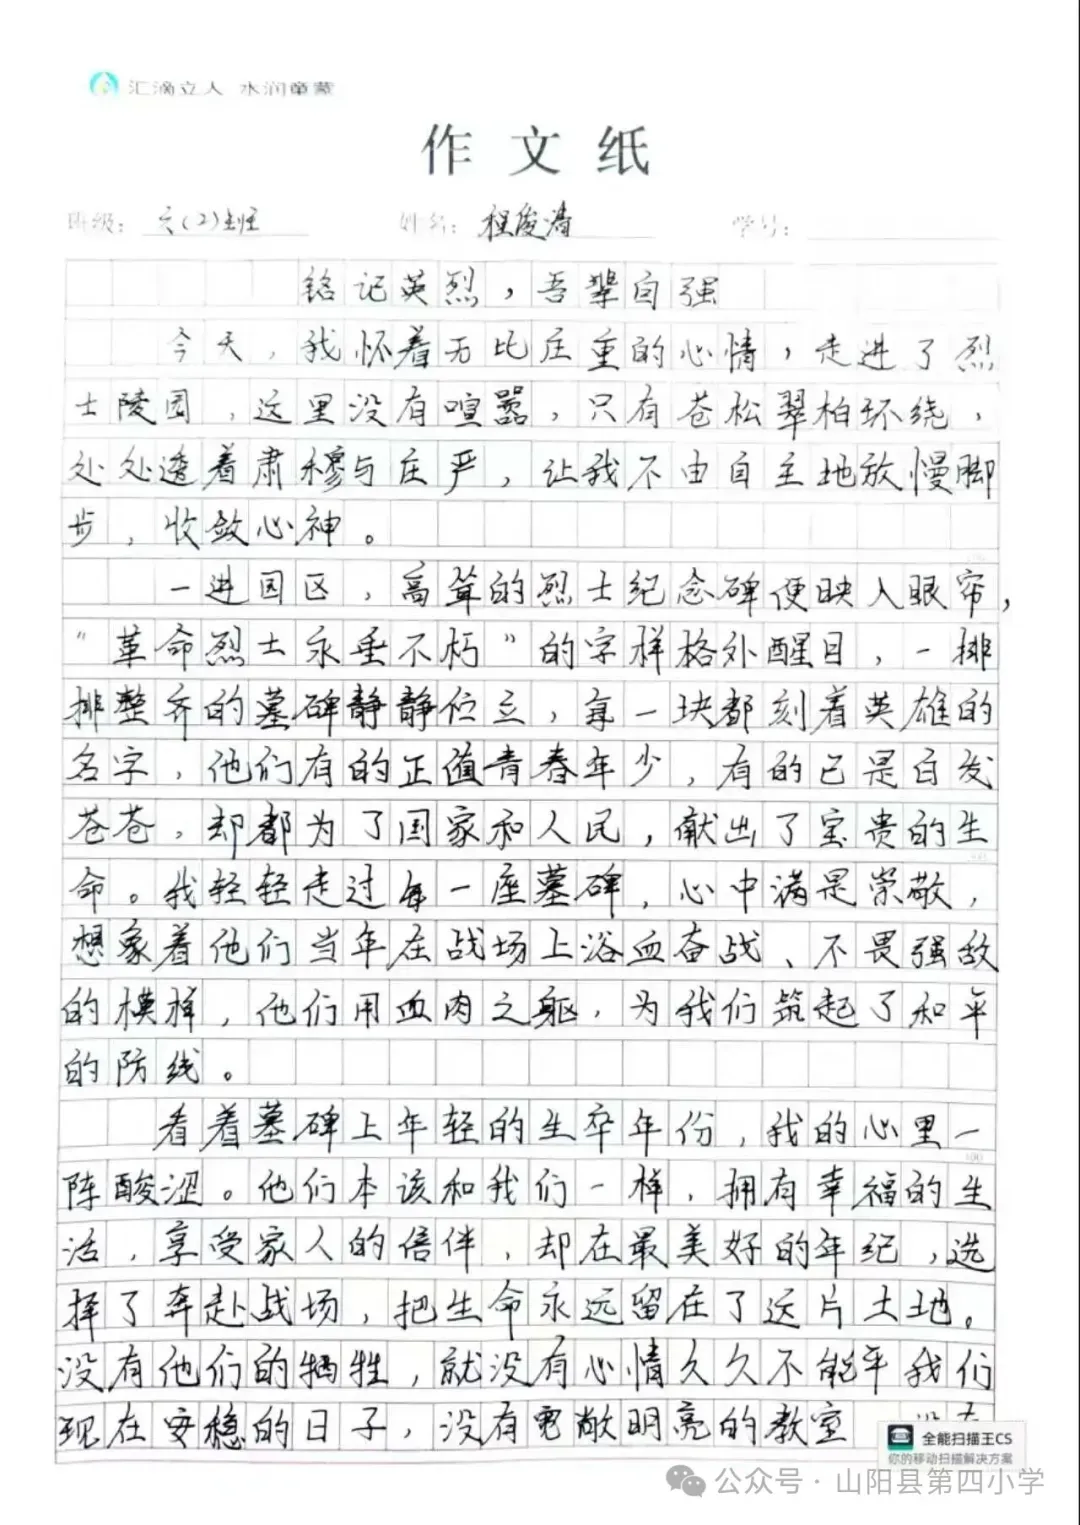 汇滴立人 水润童蒙
作文纸
班级：六(2)班 姓名：程俊涛 学号：
铭记英烈，吾辈自强
今天，我怀着无比庄重的心情，走进了烈
士陵园，这里没有喧嚣，只有苍松翠柏环绕，
处处透着肃穆与庄严，让我不由自主地放慢脚
步，收敛心神。
一进园区，高耸的烈士纪念碑便映入眼帘，
“革命烈士永垂不朽”的字样格外醒目，一排
排整齐的墓碑静静伫立，每一块都刻着英雄的
名字，他们有的正值青春年少，有的已是白发
苍苍，却都为了国家和人民，献出了宝贵的生
命。我轻轻走过每一座墓碑，心中满是崇敬，
想象着他们当年在战场上浴血奋战、不畏强敌
的模样，他们用血肉之躯，为我们筑起了和平
的防线。
看着墓碑上年轻的生卒年份，我的心里一
阵酸涩。他们本该和我们一样，拥有幸福的生
活，享受家人的陪伴，却在最美好的年纪，选
择了奔赴战场，把生命永远留在了这片土地。
没有他们的牺牲，就没有心情久久不能平我们
现在安稳的日子，没有宽敞明亮的教室
全能扫描王CS
你的移动扫描解决方案
公众号·山阳县第四小学